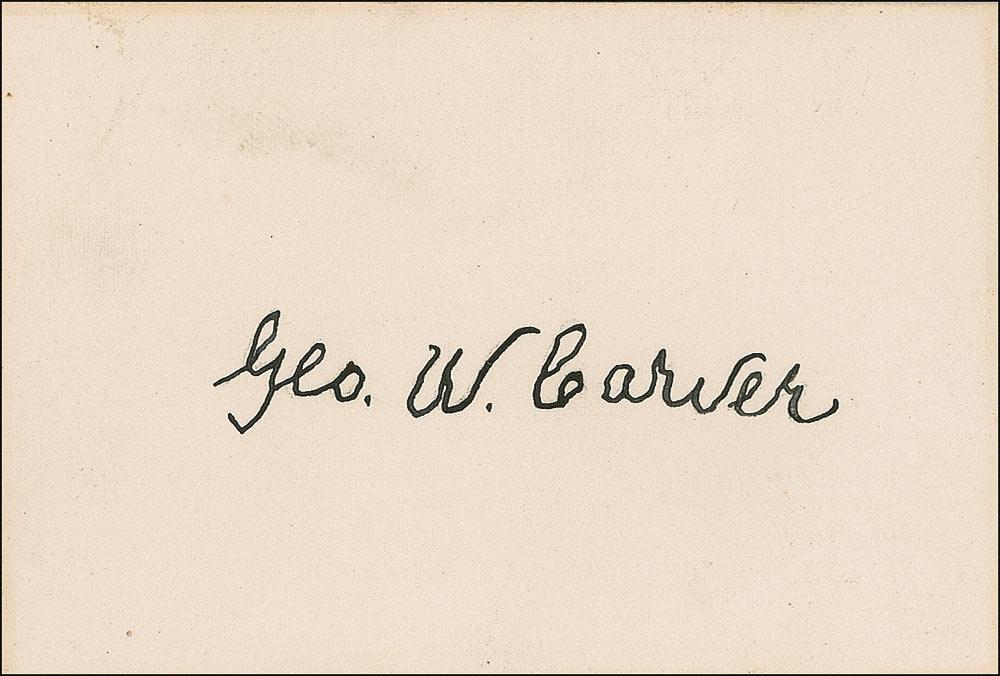 Geo. W. Carver